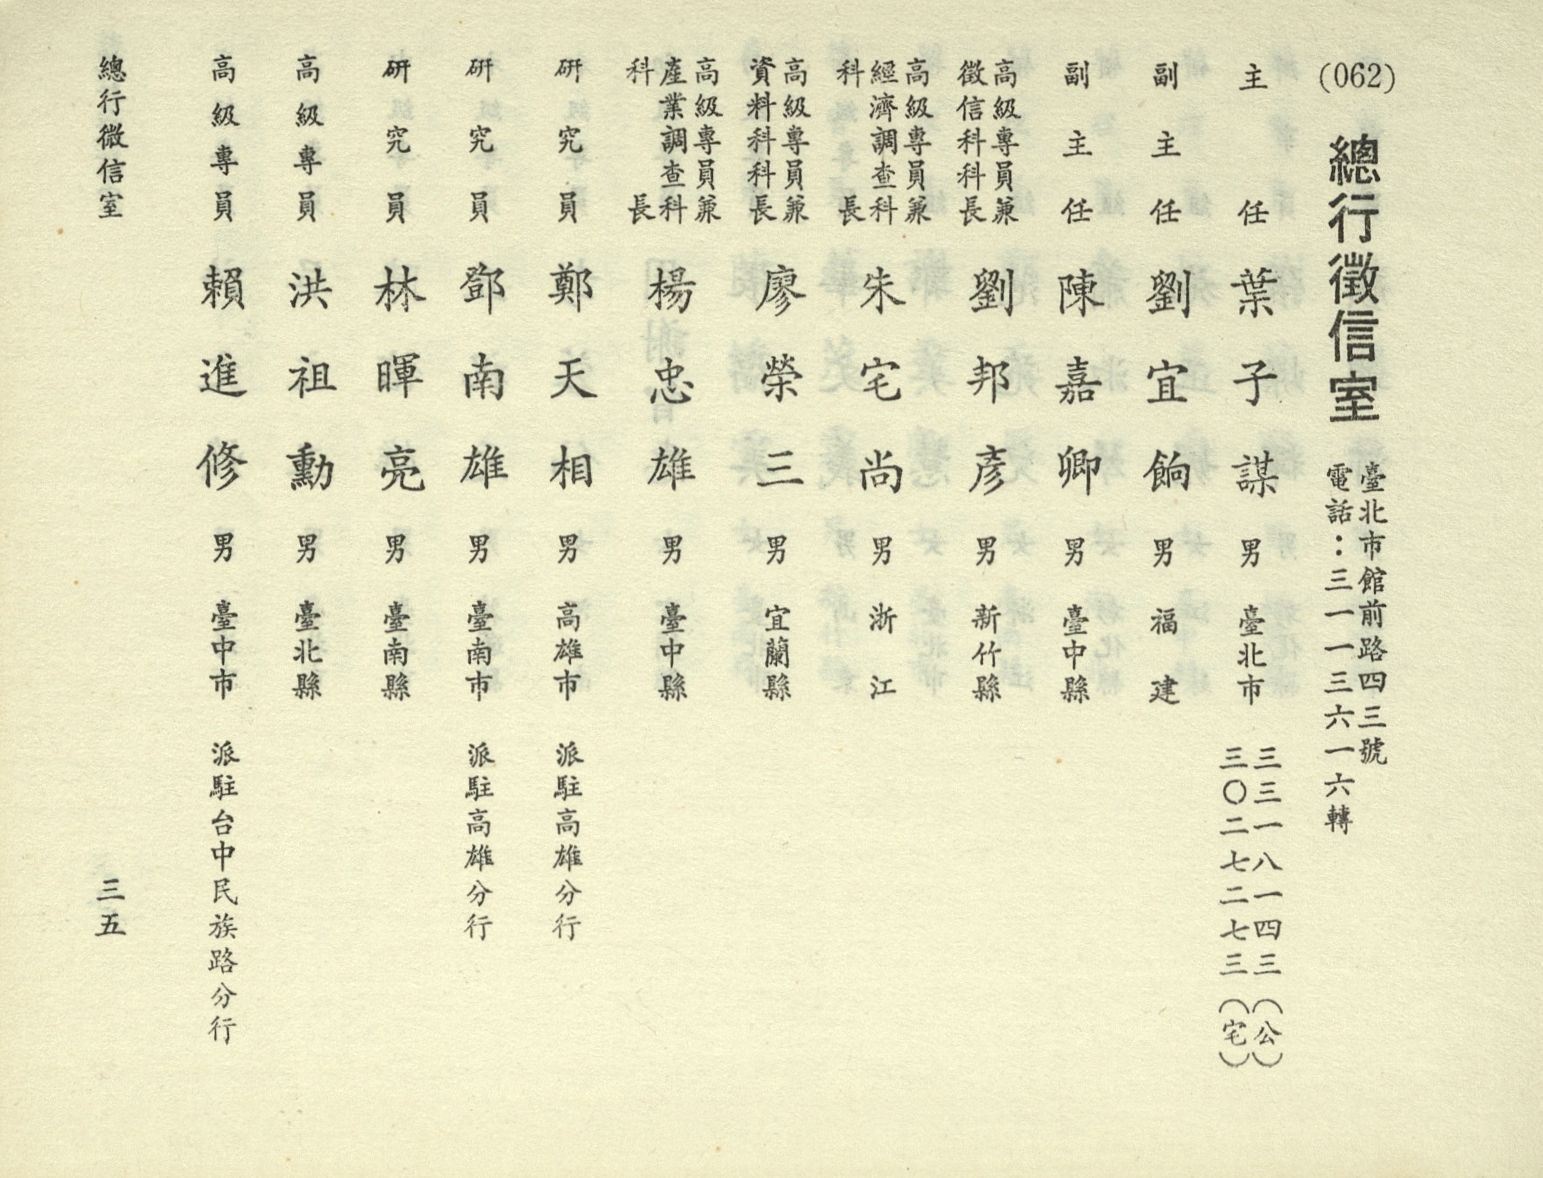 (062)
總行徵信室
臺北市館前路四三號
電話：三一一三六一六轉
主任 葉子謀 男 臺北市 三三一八一四三（公）
三〇二七二七三（宅）
副主任 劉宜餉 男 福建
副主任 陳嘉卿 男 臺中縣
高級專員兼
徵信科科長 劉邦彥 男 新竹縣
高級專員兼
經濟調查科
科長 朱宅尚 男 浙江
高級專員兼
資料科科長 廖榮三 男 宜蘭縣
高級專員兼
產業調查科
科長 楊忠雄 男 臺中縣
研究員 鄭天相 男 高雄市 派駐高雄分行
研究員 鄧南雄 男 臺南市 派駐高雄分行
研究員 林暉亮 男 臺南縣
高級專員 洪祖勳 男 臺北縣
高級專員 賴進修 男 臺中市 派駐台中民族路分行
總行徵信室
三五